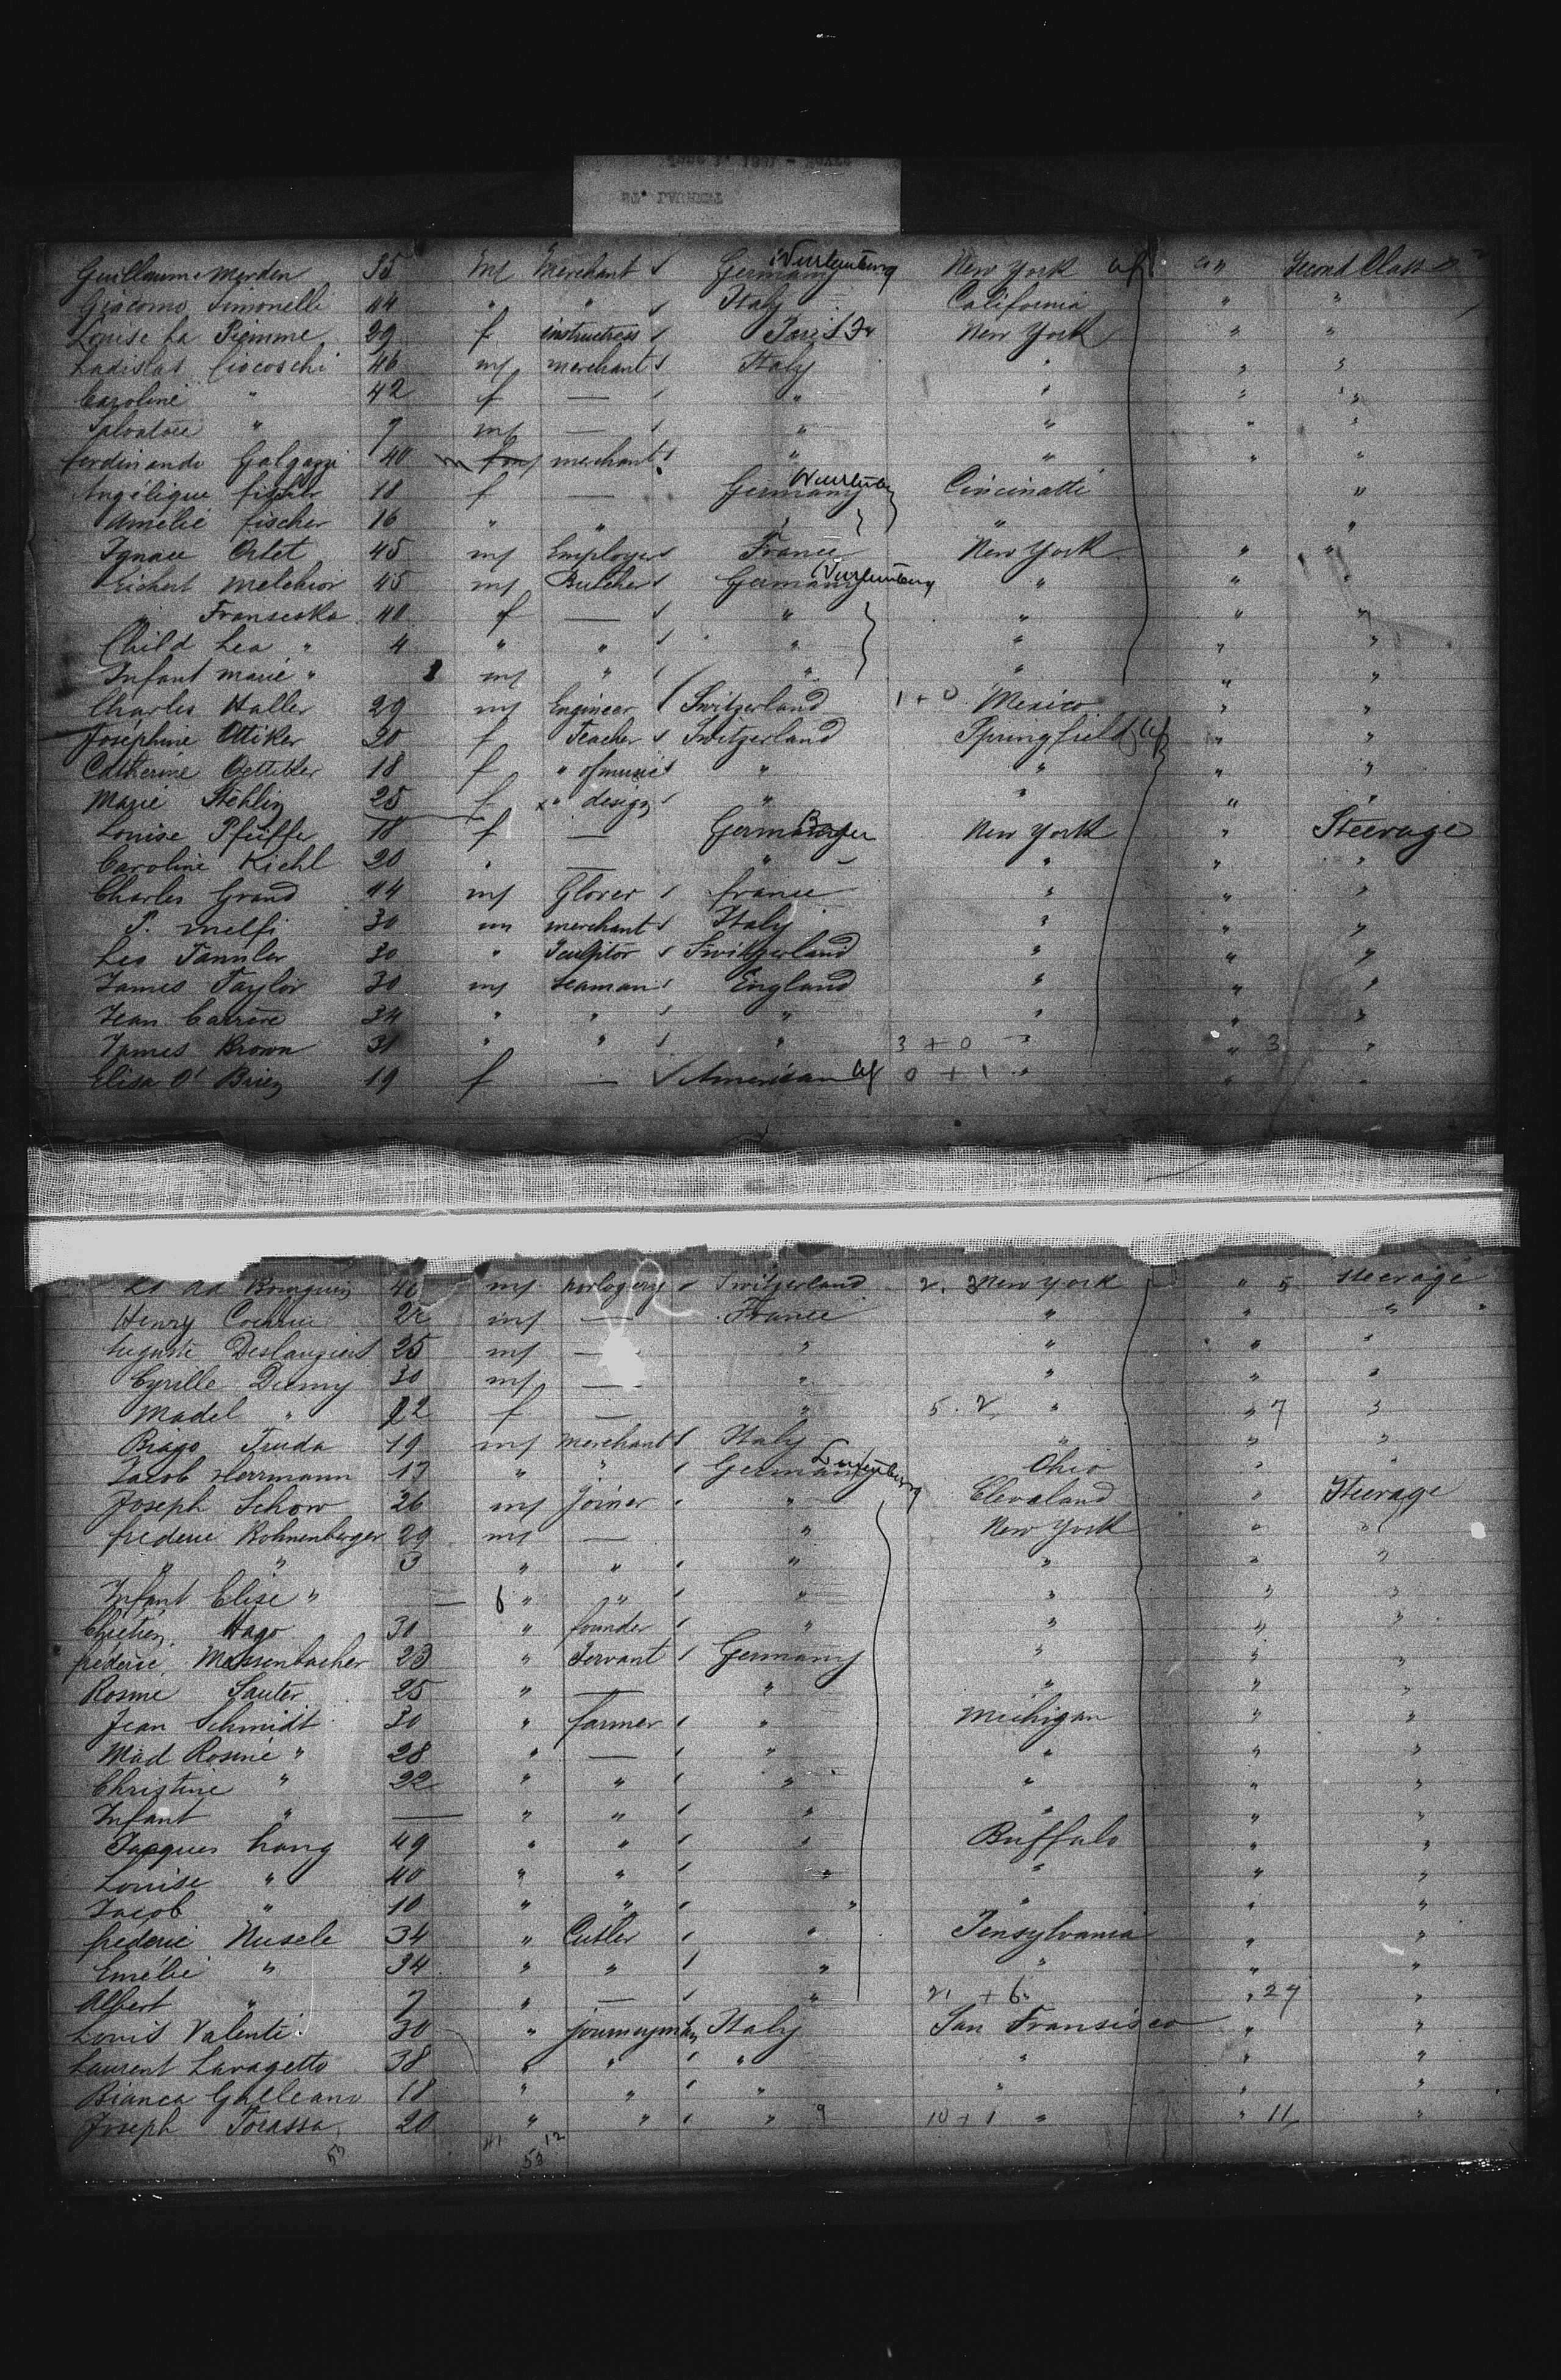 Guillaume Merden 35 m Merchant Germany Wurtemberg New York Second Class
Giacomo Simonelli 44 " " Italy California " "
Louise La Piemme 29 f instructress Paris Fr New York " "
Ladislas Ciocoschi 46 m merchant Italy " " "
Caroline " 42 f — " " " "
Salvatore " 7 m — " " " "
ferdinando Galgani 40 m merchant " " " "
Angélique fischer 18 f — Germany Wurtemberg Cincinatti "
Amelie fischer 16 " " " " "
Ignace Ortet 45 m Employer France New York " "
Eichert Melchior 45 m Butcher Germany Wurtemberg " " "
" Franseska 40 f — " " " "
Child Lea " 4 " " " " " "
Infant marie " m " " " " "
Charles Haller 29 m Engineer Switzerland 1 + 0 Mexico " "
Josephine Ottiker 20 f Teacher Switzerland Springfield " "
Catherine Oettiker 18 f " of music " " " "
Marie Stehlin 25 f x " design " " " "
Louise Pfeiffer 18 f — Germany New York " Steerage
Caroline Kiehl 20 " — " " " "
Charles Grand 44 m Glover france " " "
P. Melfi 30 m merchant Italy " " "
Leo Tannler 30 " Sculptor Switzerland " " "
James Taylor 30 m seaman England " " "
Jean Carrère 34 " " " " " "
James Brown 31 " " " 3 + 0 " " 3 "
Elisa O' Brien 19 f — American 0 + 1 " " "
Bourquin m horlogery Switzerland 2. 3 New York " 5 Steerage
Henry 22 m — France " " "
Auguste Deslaugiers 25 m — " " " "
Cyrille Demy 30 m — " " " "
Madel " 22 f — " 5. 2, " " 7 "
Biago Truda 19 m Merchant Italy " " "
Jacob Herrmann 17 " " Germany Ohio " "
Joseph Schow 26 m joiner " Clevaland " Steerage
frederic Bohnenberger 29 m — " New York " "
" " 3 " " " " " "
Infant Elise " — 6 " " " " " "
Chretien Hago 30 " founder " " " "
frederic Massenbacher 23 " Servant Germany " " "
Rosine Sauter 25 " — " " " "
Jean Schmidt 30 " farmer " Michigan " "
Mad Rosine " 28 " — " " " "
Christine " 22 " " " " " "
Infant " — " " " " " "
Jacques Lang 49 " " " Buffalo " "
Louise " 40 " " " " " "
Jacob " 10 " " " " " "
frederic Nusele 34 " Cutler " Pensylvania " "
Emélie " 34 " " " " " "
Albert " 7 " — " 21 + 6 " 27 "
Louis Valenti 30 " journeyman Italy San Fransisco " "
Laurent Lavagetto 38 " " " " " "
Bianca Galleano 18 " " " " " "
Joseph Torassa 20 " " " 9 10 + 1 " " 11 "
53 41 53 12